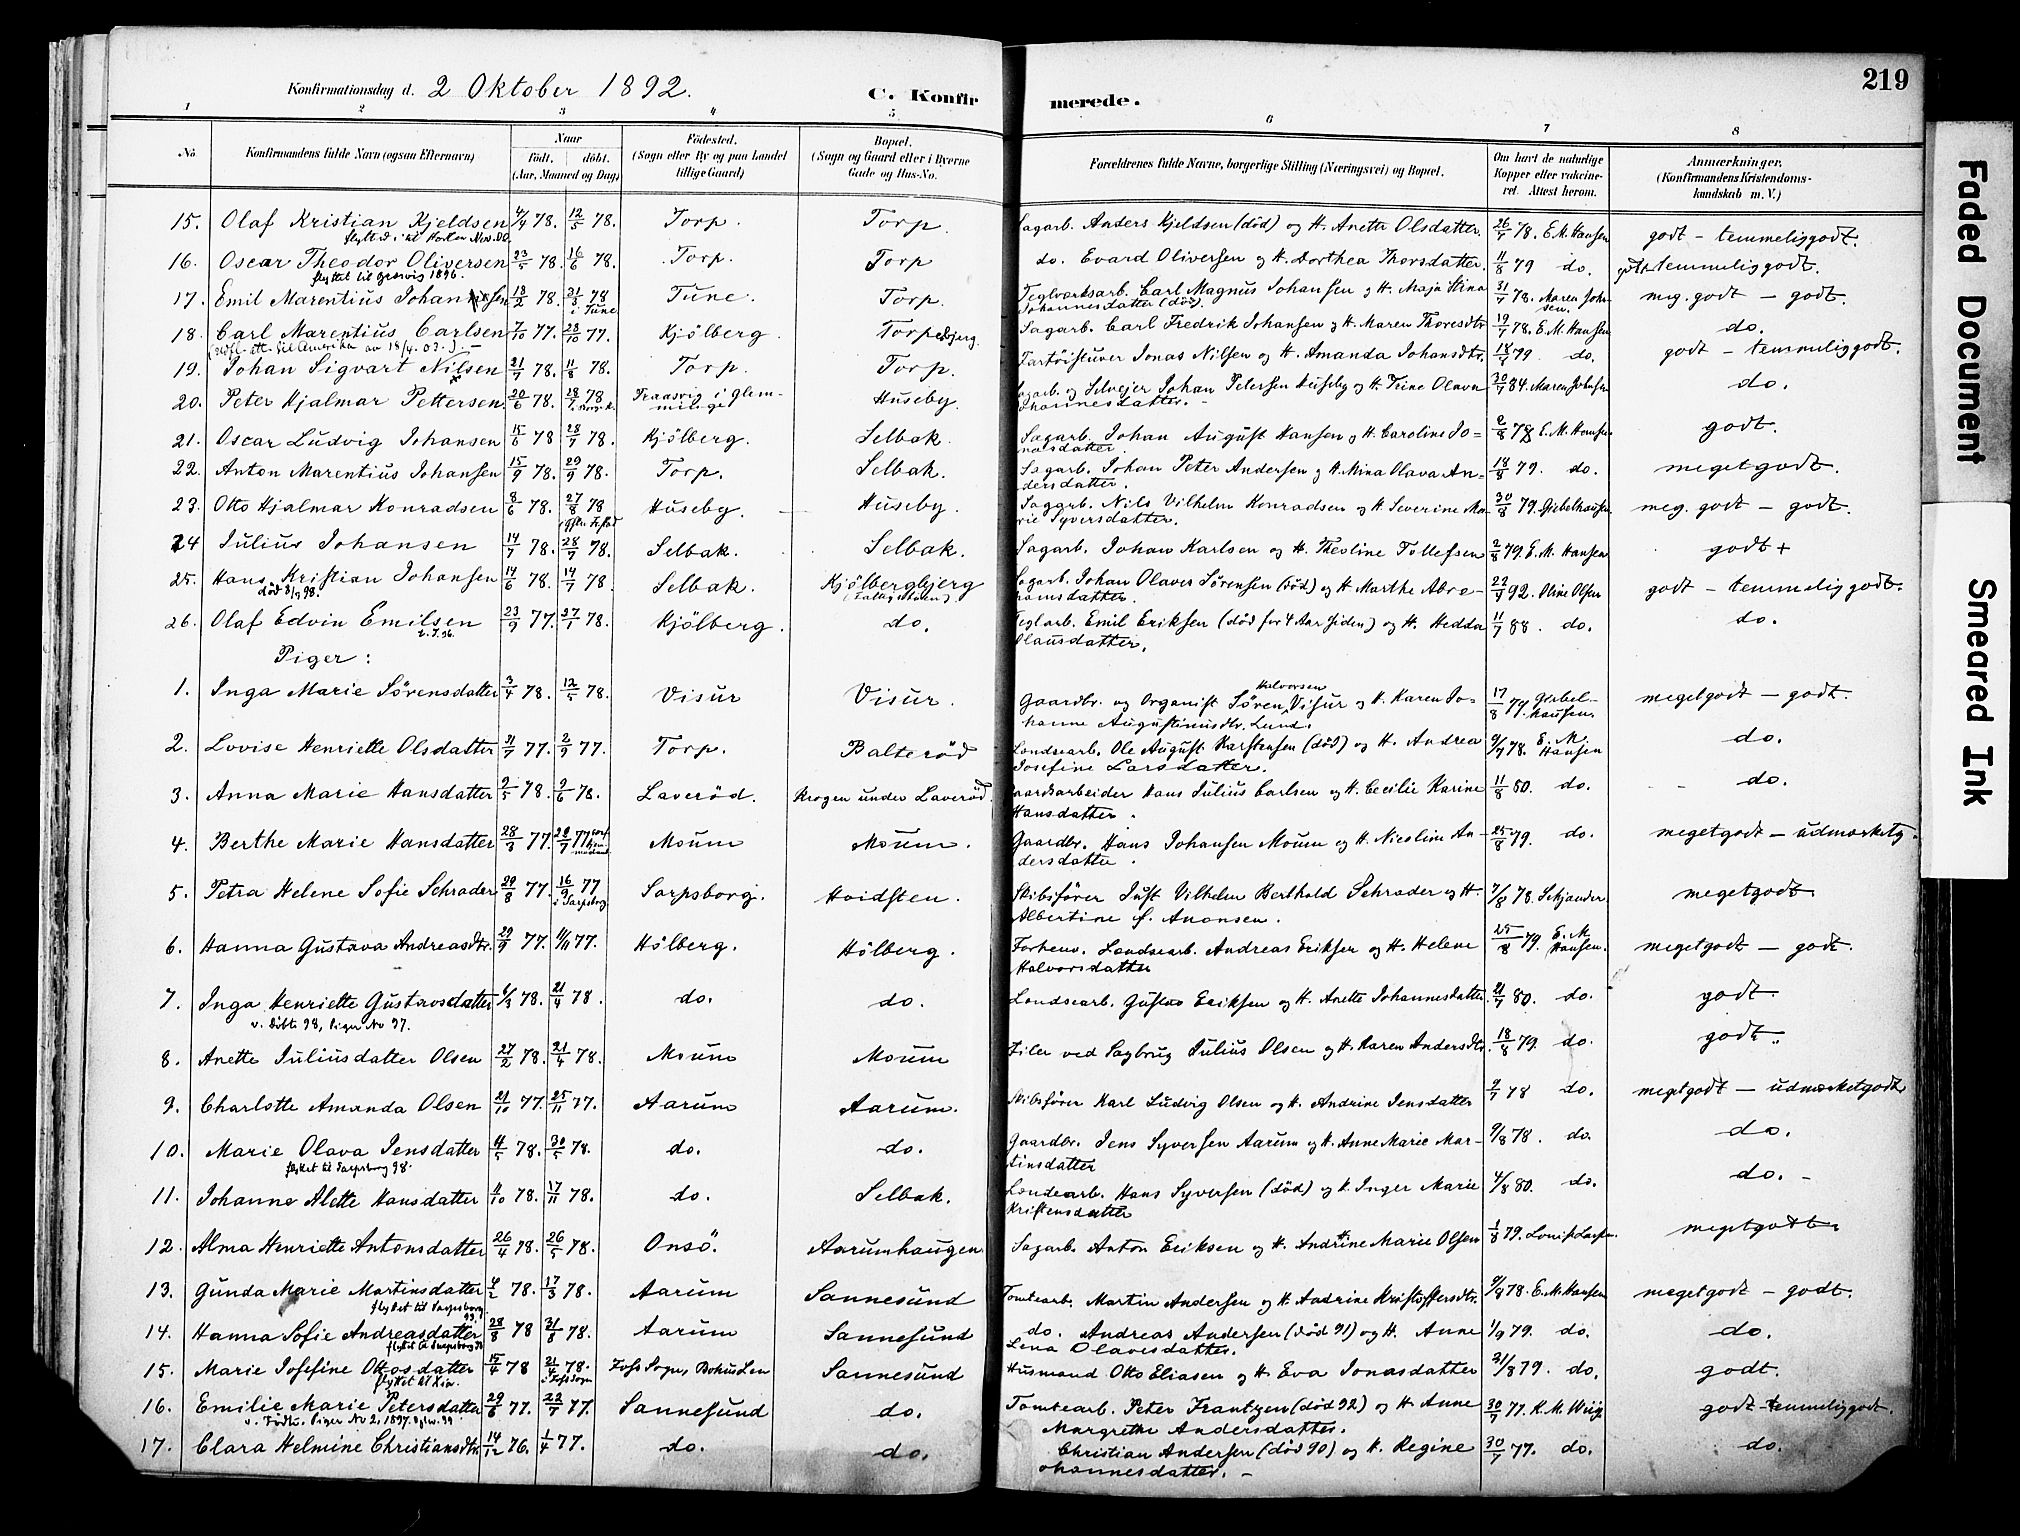 219
Konfirmationsdag d. 2 Oktober 1892. C. Konfirmerede.
1 2 3 4 5 6 7 8
No. Konfirmandens fulde Navn (ogsaa Efternavn) Naar født. døbt. (Aar, Maaned og Dag) Födested. (Sogn eller By og paa Landet tillige Gaard) Bopæl. (Sogn og Gaard eller i Byerne Gade og Hus-No. Forældrenes fulde Navne, borgerlige Stilling (Næringsvei) og Bopæl. Om havt de naturlige Kopper eller vaccineret. Attest herom. Anmærkninger. (Konfirmandens Kristendomskundskab m. V.)
15. Olaf Kristian Kjeldsen 4/4 78. 12/5 78. Torp. Torp. Sagarb. Anders Kjeldsen (död) og H. Anette Olsdatter. 26/7 78. E. M. Hansen godt - temmeliggodt.
16. Oscar Theodor Oliversen 23/5 78. 16/6 78. Torp. Torp do. Evard Oliversen og H. Dorthea Thorsdatter. 11/8 79 do. godt temmeliggodt.
flyttet til Greavig 1896.
17. Emil Marentius Johansen 18/2 78. 31/3 78 i Tune Tune. Torp. Teglværksarb. Carl Magnus Johansen og H. Maja Stina Johannesdatter (död) 31/7 78. Maren Johnsen. meg. godt - godt.
18. Carl Marentius Carlsen 7/10 77. 28/10 77. Kjölberg Torpebjerg. Sagarb. Carl Fredrik Johansen og H. Maren Thoresdtr 19/7 78. E. M. Hansen do.
19. Johan Sigvart Nilsen 21/7 78. 11/8 78. Torp. Torp. Fartöistuver Jonas Nilsen og H. Amanda Johansdtr. 18/8 79 do. godt - temmeliggodt.
20. Peter Hjalmar Pettersen 20/6 78. 28/7 78 Traasvig i Glemminge Huseby. Sagarb. og Selvejer Johan Petersen Huseby og H. Trine Olava Johannesdatter. 30/7 84. Maren Johnsen do.
21. Oscar Ludvig Johansen 15/6 78 28/7 78. Kjölberg. Selbak. Sagarb. Johan August Hansen og H. Caroline Jonasdatter. 2/8 78 E. M. Hansen godt.
22. Anton Marentius Johansen 15/9 78. 29/9 78. Torp. Selbak. Sagarb. Johan Peter Andersen og H. Mina Olava Andersdatter. 18/8 79. do. megetgodt.
23. Otto Hjalmar Konradsen 8/6 78. 27/8 78 Huseby. Huseby. Sagarb. Nils Vilhelm Konradsen og H. Severine Marie Syversdatter. 30/8 79. Giebelhausen meg. godt - godt.
24 Julius Johansen 14/7 78. 28/7 78. Selbak. Selbak. Sagarb. Johan Karlsen og H. Theoline Tollefsen 2/8 79. E. M. Hansen godt +
25. Hans Kristian Johansen 14/6 78. 14/7 78. Selbak. Kjölbergbjerg Sagarb. Johan Olaves Sörensen (död) og H. Marthe Abrahamsdatter. 22/9 92. Oline Olsen godt - temmeliggodt.
26. Olaf Edvin Emilsen 23/9 77. 27/1 78. Kjölberg. do. Teglarb. Emil Eriksen (död for 4 Aar siden) og H. Hedda Olausdatter. 11/7 88. do. do.
Piger:
1. Inga Marie Sörensdatter 3/4 78. 12/5 78. Visur Visur. Gaardbr. og Organist Sören Halvorsen Visur og H. Karen Johanne Augustinusdtr. Lund. 17/8 79. Giebelhausen. megetgodt - godt.
2. Lovise Henriette Olsdatter 31/7 77. 2/9 77. Torp. Balteröd Londsearb. Ole August Karstensen (död) og H. Andrea Josefine Larsdatter. 9/7 78. E. M. Hansen do.
3. Anna Marie Hansdatter 9/5 78. 9/6 78. Laveröd. Krogen under Laveröd. Gaardsarbeider Hans Julius Carlsen og H. Cecilie Karine Hansdatter. 11/8 80. do. do.
4. Berthe Marie Hansdatter 28/8 77. Moum Moum. Gaardbr. Hans Johansen Moum og H. Nicoline Andersdatter. 25/8 79. do. megetgodt - udmærketg.
5. Petra Helene Sofie Schrader 20/8 77. 16/9 77 i Sarpsborg Sarpsborg. Hvidsten. Skibsförer Just Vilhelm Berthold Schrader og H. Albertine f. Anonsen. 7/8 78. Schjander megetgodt
6. Hanna Gustava Andreasdtr. 29/9 77. 11/11 77. Hölberg. Hölberg. Forhenv. Londsearb. Andreas Eriksen og H. Helene Halvorsdatter 25/8 79. E. M. Hansen. megetgodt - godt.
7. Inga Henriette Gustavsdatter 6/3 78. 21/4 78. do. do. Londsearb. Gustav Eriksen og H. Anette Johannesdatter. 21/7 80. do. godt.
v. Döbte 98, Piger No 97.
8. Anette Juliusdatter Olsen 27/2 78. 21/4 78. Moum Moum Filer ved Sagbrug Julius Olsen og H. Karen Andersdtr. 18/8 79. do. godt.
9. Charlotte Amanda Olsen 21/10 77. 25/11 77. Aarum Aarum. Skibsförer Karl Ludvig Olsen og H. Andrine Jensdatter 9/7 78 do. megetgodt - udmærketgodt
10. Marie Olava Jensdatter 4/5 78. 30/5 78. do. do. Gaardbr. Jens Syversen Aarum og H. Anne Marie Martinsdatter 9/8 78. do. do.
flyttet til Sarpsborg 98.
11. Johanne Alette Hansdatter 11/10 78. 17/11 78. do. Selbak. Londsearb. Hans Syversen (död) og H. Inger Marie Kristensdatter 4/8 80. do. do.
12. Alma Henriette Antonsdatter 26/4 78. 26/5 78. Onsö. Aarumhaugen. Sagarb. Anton Eriksen og H. Andrine Marie Olsen 1/8 79. megetgodt.
13. Gunda Marie Martinsdatter 4/2 78. 17/3 78. Aarum Sannesund Tomtearb. Martin Andersen og H. Andrine Kristoffersdtr. 9/8 78. E. M. Hansen megetgodt - godt.
flyttet til Sarpsborg
14. Hanna Sofie Andreasdatter 28/8 78 31/8 78. Aarum Sannesund do. Andreas Andersen (död 91) og H. Anne Lena Olavesdatter. 1/9 79. do. do.
flyttet til Sarpsborg
15. Marie Josefine Ottosdatter 15/4 78 21/4 78. i Foss Sogn Foss Sogn, Bohus Len Sannesund Husmand Otto Eliasen og H. Eva Jonasdatter 21/8 79. do. godt.
16. Emilie Marie Petersdatter 29/6 77. 22/7 77. Sannesund do. Tomtearb. Peter Frantzen (död 92) og H. Anne Margrethe Andersdatter. 30/7 77. K. M. Wiig godt-temmeliggodt.
17. Clara Helmine Christiansdtr. 14/12 76. 1/4 77. do. do. Christian Andersen (död 90) og H. Regine Johannesdatter. 30/7 77. do. do.
Faded Document
Smeared Ink